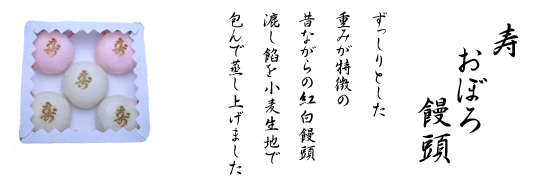 寿
おぼろ
饅頭
ずっしりとした
重みが特徴の
昔ながらの紅白饅頭
漉し餡を小麦生地で
包んで蒸し上げました
寿
寿
寿
寿
寿